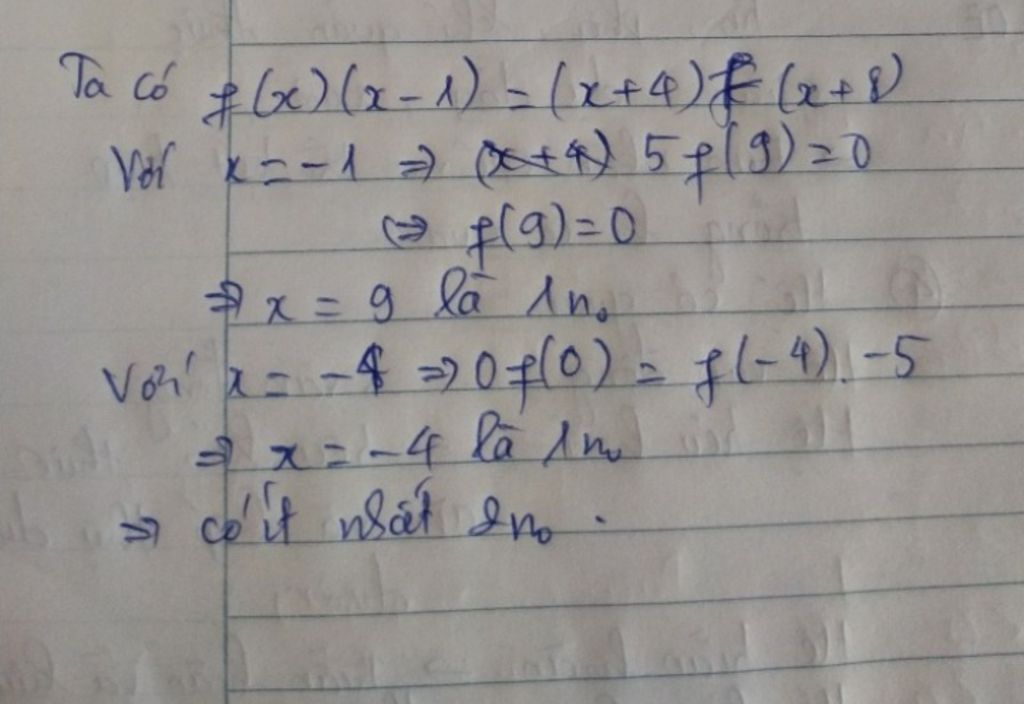 Ta có f(x)(x-1) = (x+4) f (x+8)
Với x = -1 ⇒ (x+4) 5 f(9) = 0
⇔ f(9) = 0
⇒ x = 9 là 1 n₀
Với x = -4 ⇒ 0 f(0) = f(-4). -5
⇒ x = -4 là 1 n₀
⇒ có ít nhất 2 n₀.